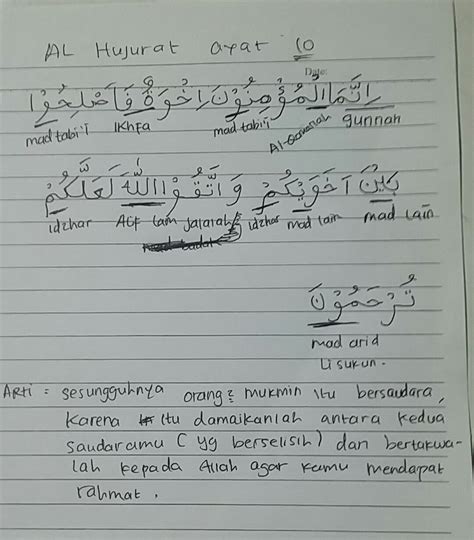 AL Hujurat ayat 10
Date:
اِنَّمَا الْمُؤْمِنُوْنَ اِخْوَةٌ فَاَصْلِحُوْا
mad tabi'i Ikhfa mad tabi'i Al-Qamariah gunnah
بَيْنَ اَخَوَيْكُمْ وَاتَّقُوا اللّٰهَ لَعَلَّكُمْ
idzhar lam jalalah idzhar mad lain mad lain
تُرْحَمُوْنَ
mad arid
Lisukun.
Arti = sesungguhnya orang2 mukmin itu bersaudara,
karena itu damaikanlah antara kedua
saudaramu (yg berselisih) dan bertakwa-
lah kepada Allah agar kamu mendapat
rahmat.